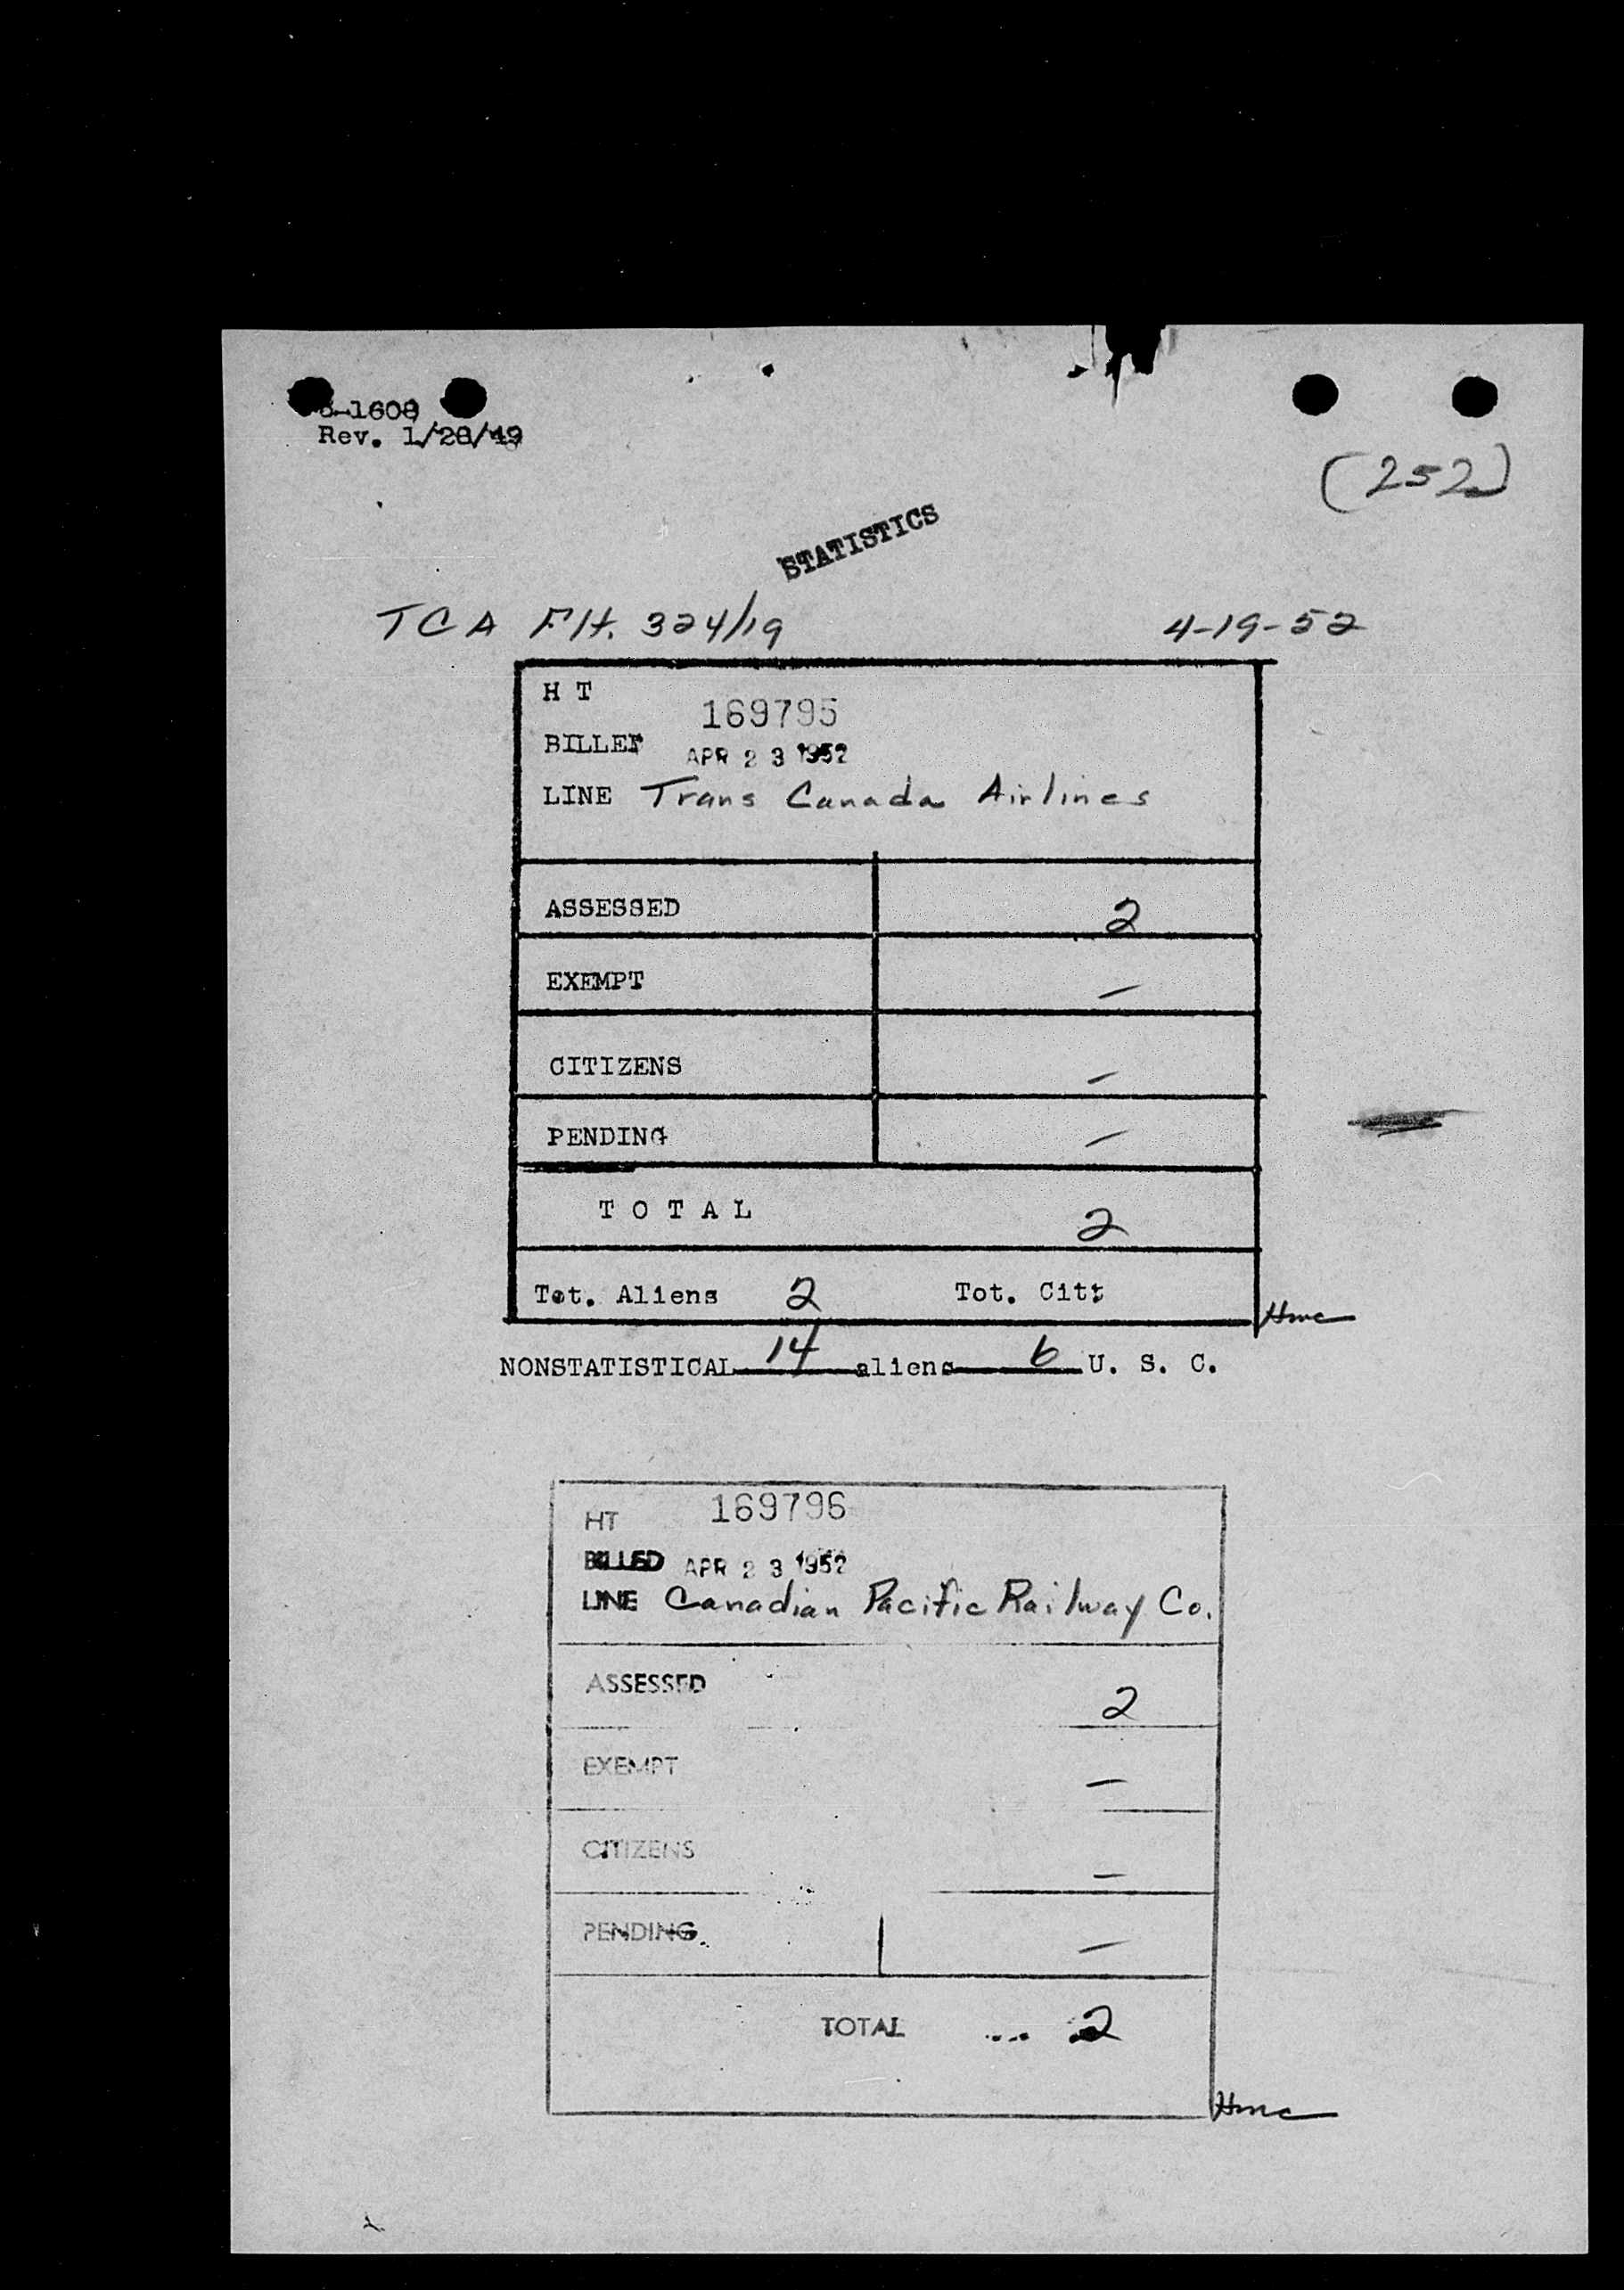 6-1608
Rev. 1/28/49
(252)
STATISTICS
TCA Flt. 324/19 4-19-52
H T
169795
BILLED APR 23 1952
LINE Trans Canada Airlines
ASSESSED 2
EXEMPT —
CITIZENS —
PENDING —
T O T A L 2
Tot. Aliens 2 Tot. Cit:
Hmc
NONSTATISTICAL 14 aliens 6 U. S. C.
HT 169796
BILLED APR 23 1952
LINE Canadian Pacific Railway Co.
ASSESSED 2
EXEMPT —
CITIZENS —
PENDING —
TOTAL ... 2
Hmc